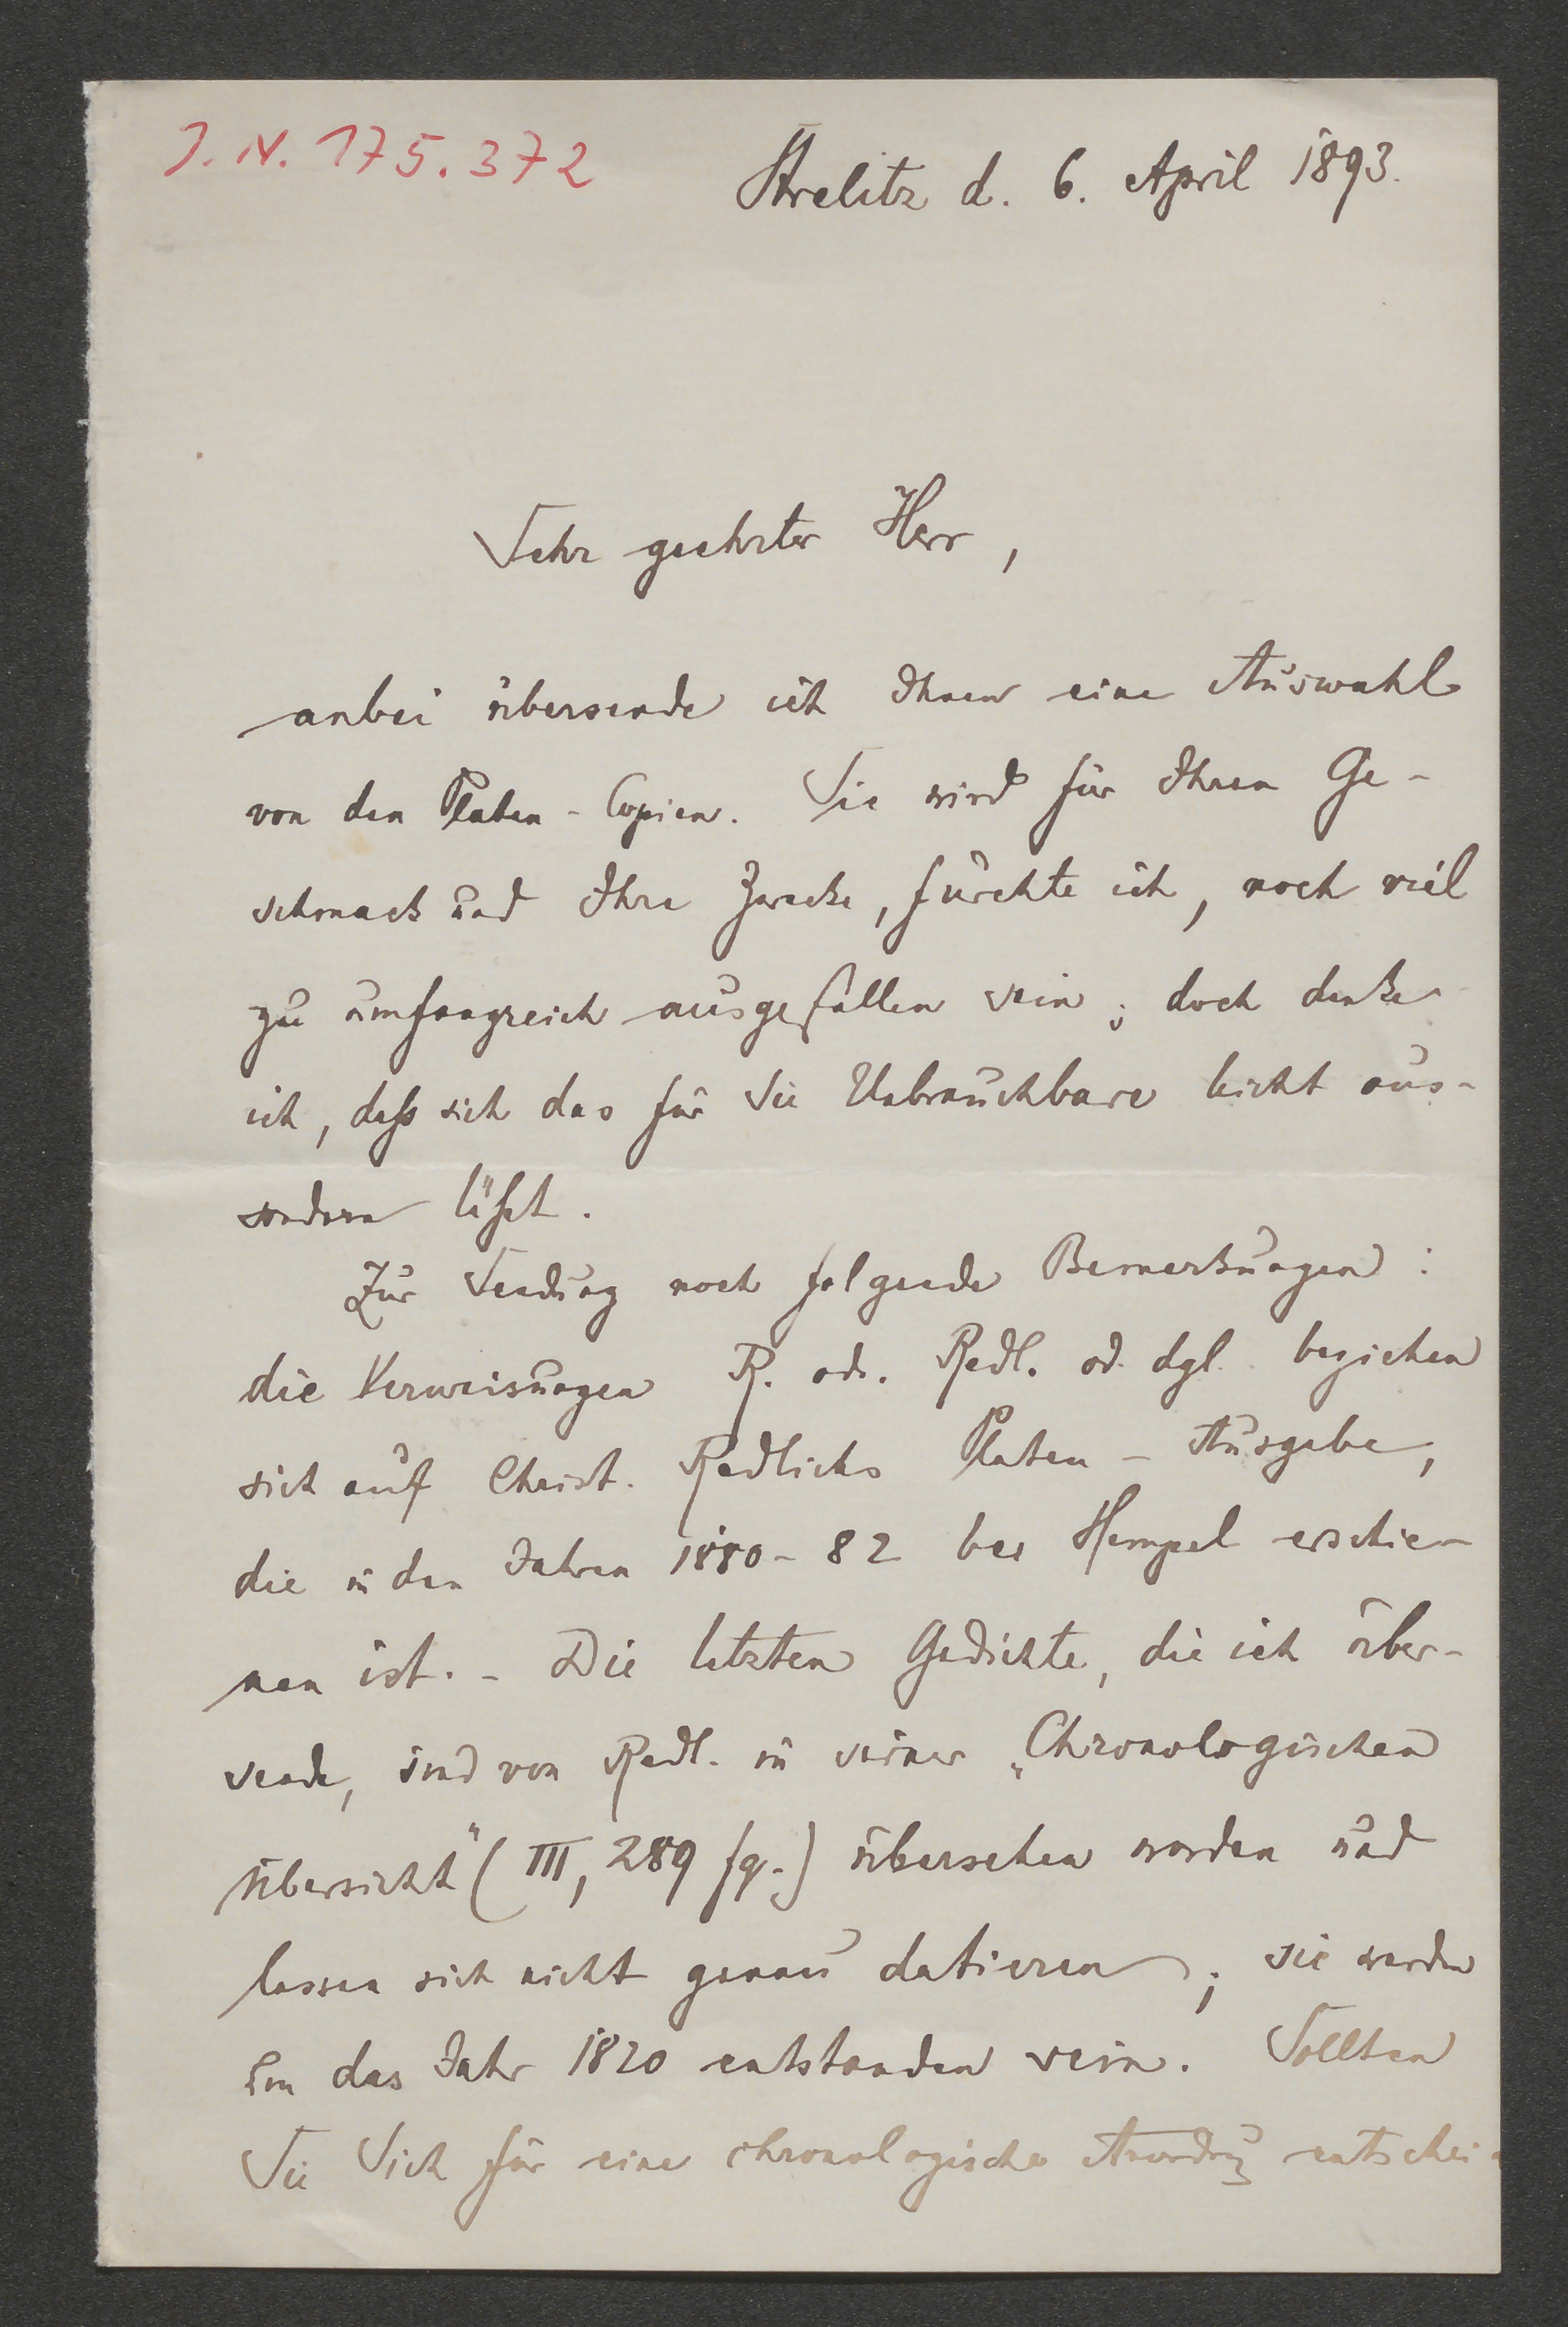 J. N. 175.372
Strelitz d. 6. April 1893.
Sehr geehrter Herr,
anbei übersende ich Ihnen eine Auswahl
von den Platen-Copien. Sie wird für Ihren Ge-
schmack und Ihre Zwecke, fürchte ich, noch viel
zu umfangreich ausgefallen sein; doch denke
ich, daß sich das für Sie Unbrauchbare leicht aus-
sondern läßt.
Zur Sendung noch folgende Bemerkungen:
die Verweisungen R. od. Redl. od. dgl. beziehen
sich auf Christ. Redlichs Platen-Ausgabe,
die in den Jahren 1880-82 bei Hempel erschie-
nen ist. - Die letzten Gedichte, die ich über-
sende, sind von Redl. in seiner „Chronologischen
Übersicht" (III, 289 fg.) übersehen worden und
lassen sich nicht genau datieren; sie werden
um das Jahr 1820 entstanden sein. Sollten
Sie Sich für eine chronologische Anordng entschei-